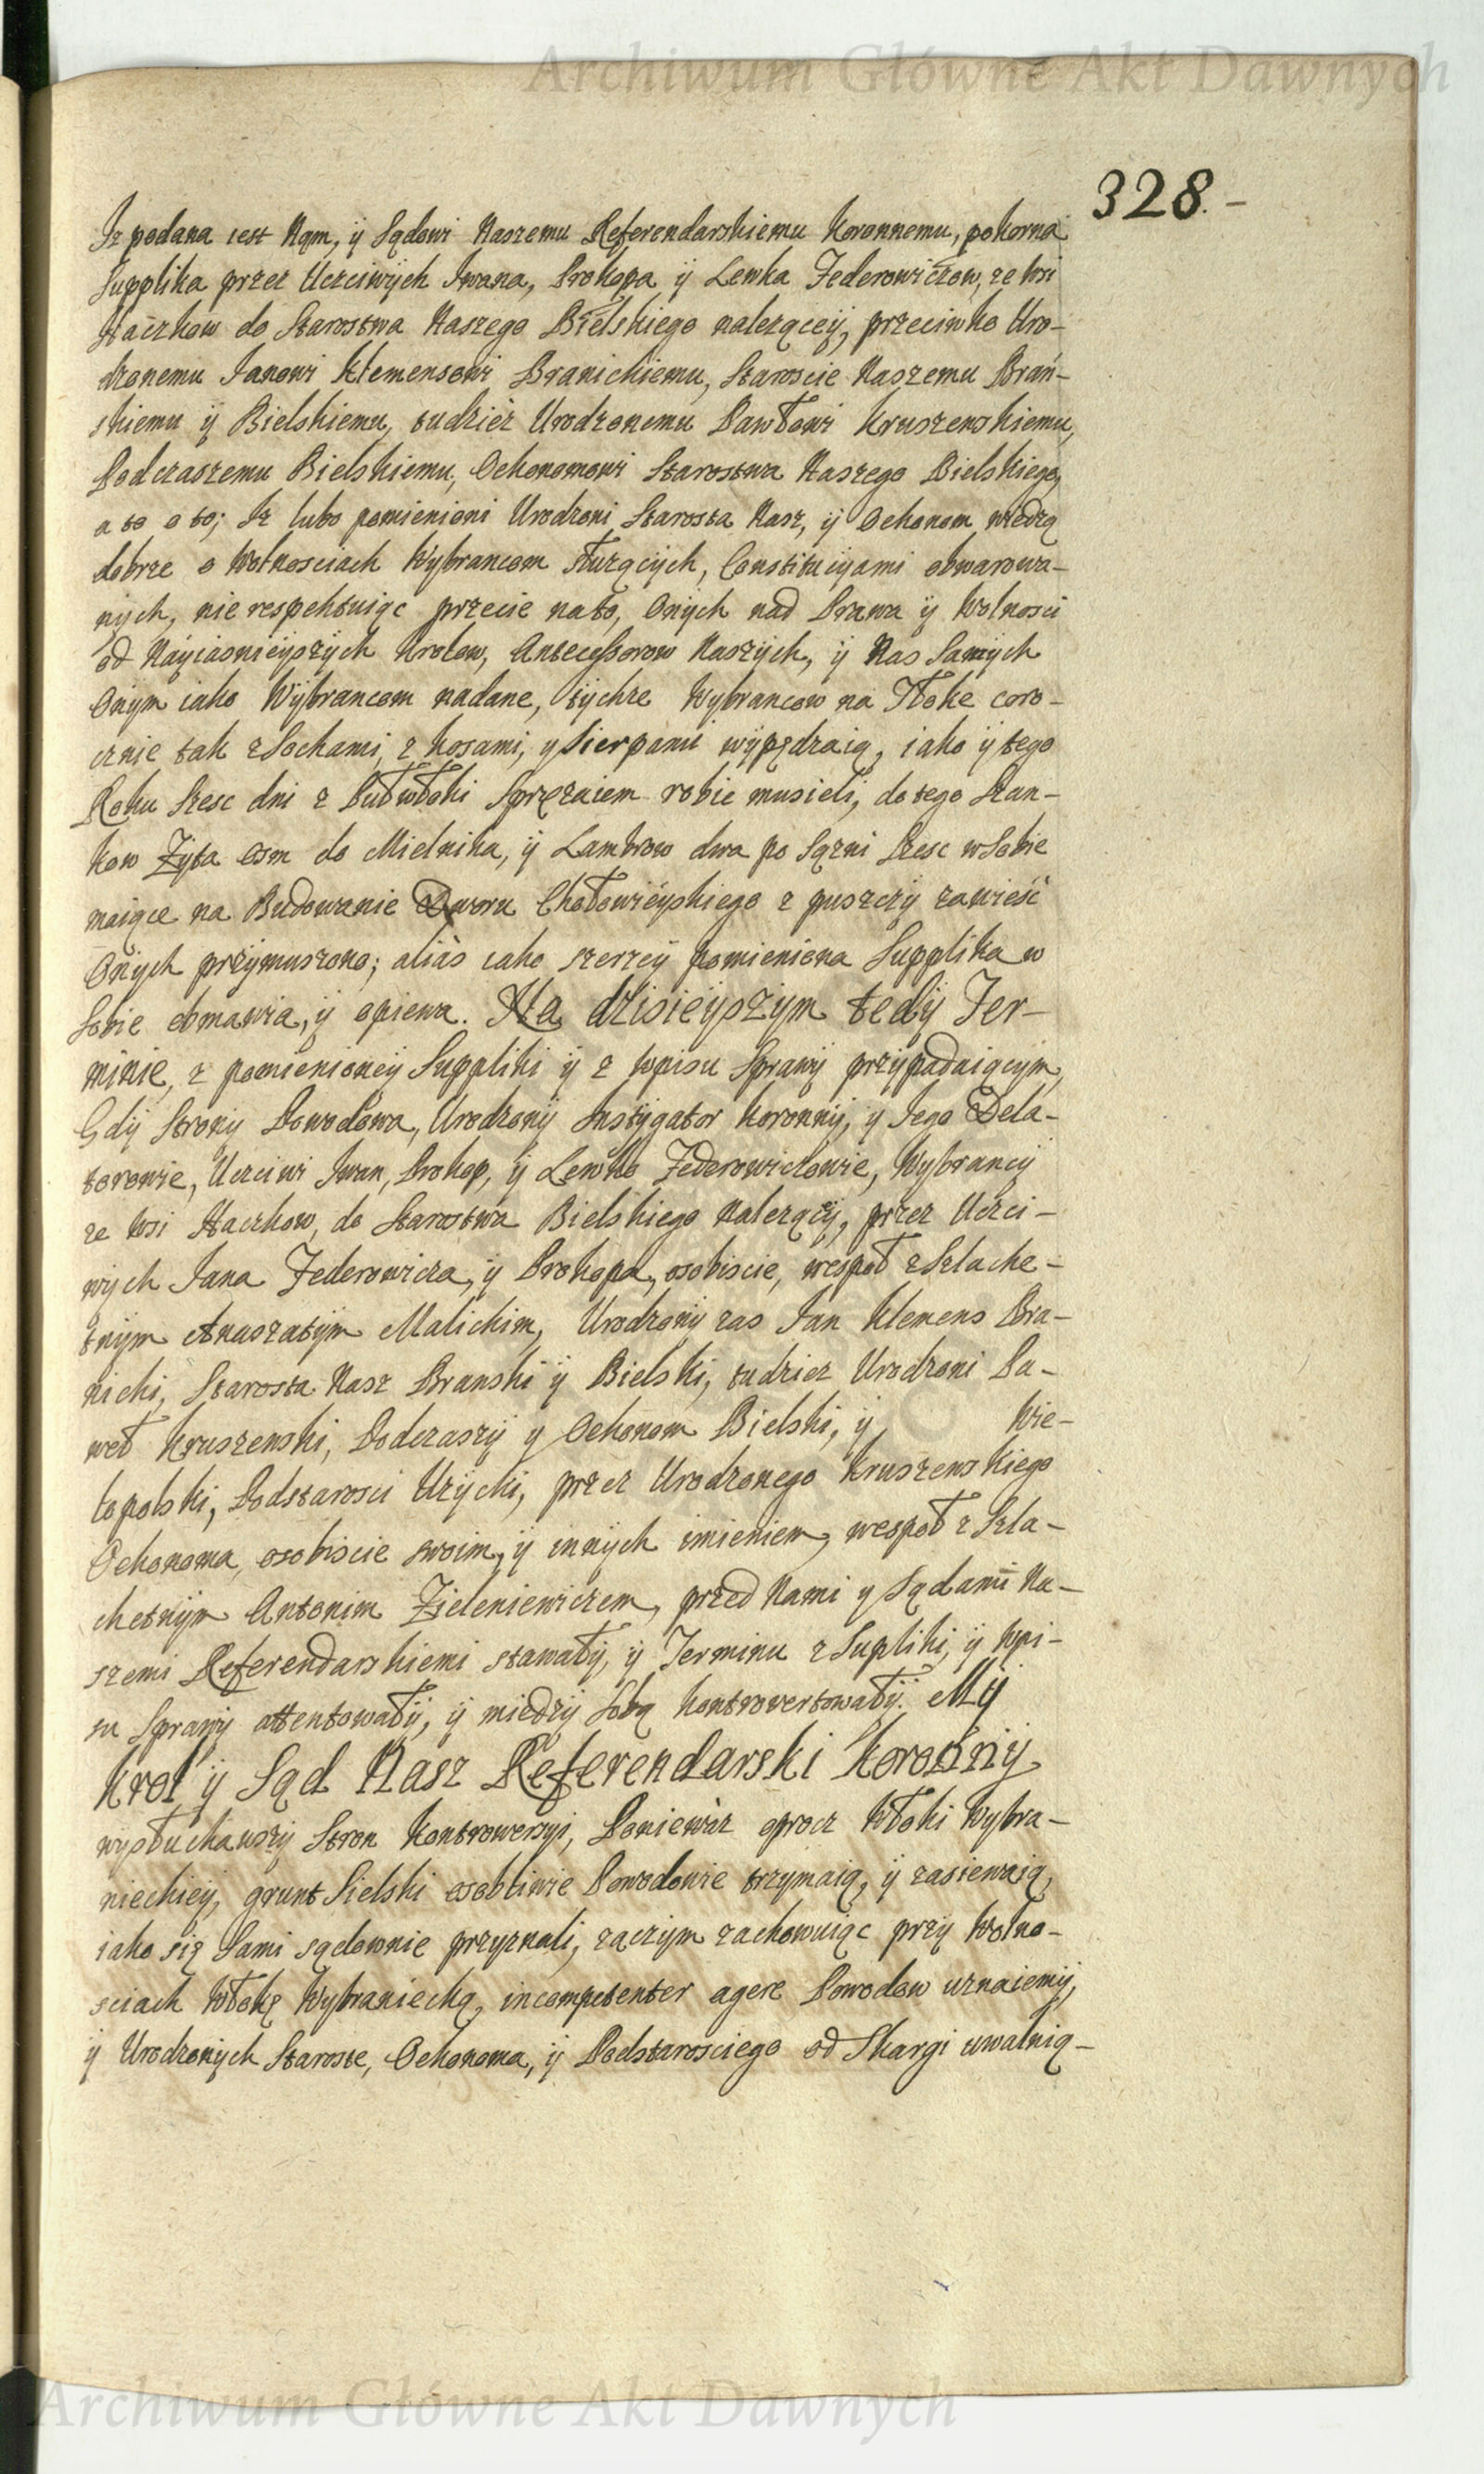 Archiwum Główne Akt Dawnych
328.-
Iz podana iest Nąm, ÿ Sądowi Naszemu Referendarskiemu Koronnemu, pokorna
Supplika przez Uczciwÿch Iwana, Prokopa ÿ Lewka Federowiczow, ze wsi
Haćzkow do Starostwa Naszego Bielskiego nalezącey, przeciwko Uro-
dzonemu Janowi Klemensowi Branickiemu, Staroscie Naszemu Brań-
skiemu ÿ Bielskiemu, tudzież Urodzonemu Pawłowi Kruszewskiemu,
Podczaszemu Bielskiemu, Oekonomowi Starostwa Naszego Bielskiego,
a to o to; Iz lubo pomienieni Urodzeni Starosta Nasz, ÿ Oekonom wiedzą
dobrze o Wolnosciach Wybrancom słuzącÿch, Constitucÿami obwarowa-
nÿch, nie respektuiąc przecie na to, Onÿch nad Prawa ÿ Wolnosci
od Náÿiasnieÿszÿch Krolow, Antecessorow Naszÿch, ÿ Nas Samÿch
Onÿm iako Wÿbrancom nadane, tÿchze Wybrancow na Tłoke coro-
cznie tak z Sochami, z kosami, y Sierpami wÿpędzaią, iako ÿ tego
Roku Szesc dni z Putwłoki Sprzęzaiem robic musieli, do tego Szan-
kow Zÿta osm do Mielnika, ÿ Lambrow dwa po Sązni Szesc w Sobie
maiące na Budowanie Dworu Chołowieÿskiego z puszczÿ zawieść
Onÿch przÿmuszono; aliàs iako szerzeÿ pomieniona Supplika w
Sobie obmawia, ÿ opiewa. Na dzisieÿszÿm tedÿ Ter-
minie, z pomienioneÿ Suppliki ÿ z wpisu Sprawÿ przÿpadaiącÿm,
Gdÿ Stronÿ Powodowa, Urodzonÿ Instÿgator Koronnÿ, y Jego Dela-
torowie, Uczciwi Iwan, Prokop, ÿ Lewko Federowiczowie, Wybrancÿ
ze Wsi Haczkow, do Starostwa Bielskiego Nalezącÿ, przez Uczci-
wÿch Jana Federowicza, ÿ Prokopa, osobiscie, wespoł z Szlache-
tnÿm Anaszatÿm Malickim, Urodzonÿ zas Jan Klemens Bra-
nicki, Starosta Nasz Branski ÿ Bielski, tudziez Urodzeni Pa-
weł Kruszewski, Podczaszÿ y Oekonom Bielski, ÿ Wie-
lopolski, Podstarosci Uzÿcki, przez Urodzonego Kruszewskiego
Oekonoma, osobiscie swoim, ÿ innÿch imieniem, wespoł z Szla-
chetnÿm Antonim Zieleniewiczem, przed Nami y Sądami Na-
szemi Referendarskiemi stawałÿ, ÿ Terminu z Supliki, ÿ Wpi-
su Sprawÿ attentowałÿ, ÿ miedzÿ Sobą kontrovertowałÿ. Mÿ
Krol ÿ Sąd Nasz Referendarski Koronnÿ
wysłuchawszÿ Stron Kontrowersyi, Poniewàz oprocz Włoki Wybra-
nieckieÿ, grunt Sielski osobliwie Powodowie trzymaią, ÿ zasiewaią,
iako się Sami sądownie przyznali, zaczÿm zachowuiąc przÿ Wolno-
sciach Włokę Wybraniecką, incompetenter agere Powodow uznaiemÿ,
ÿ Urodzonÿch Staroste, Oekonoma, ÿ Podstarosciego od Skargi uwalnią-
Archiwum Główne Akt Dawnych